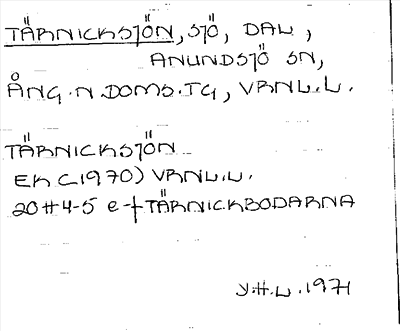 TÄRNICKSJÖN, SJÖ, DAL,
ANUNDSJÖ SN,
ÅNG.N.DOMS.TG, VRNL.L.
TÄRNICKSJÖN
EK (1970) VRNL.L.
20H4-5 e-f TÄRNICKBODARNA
Y.H.L. 1971